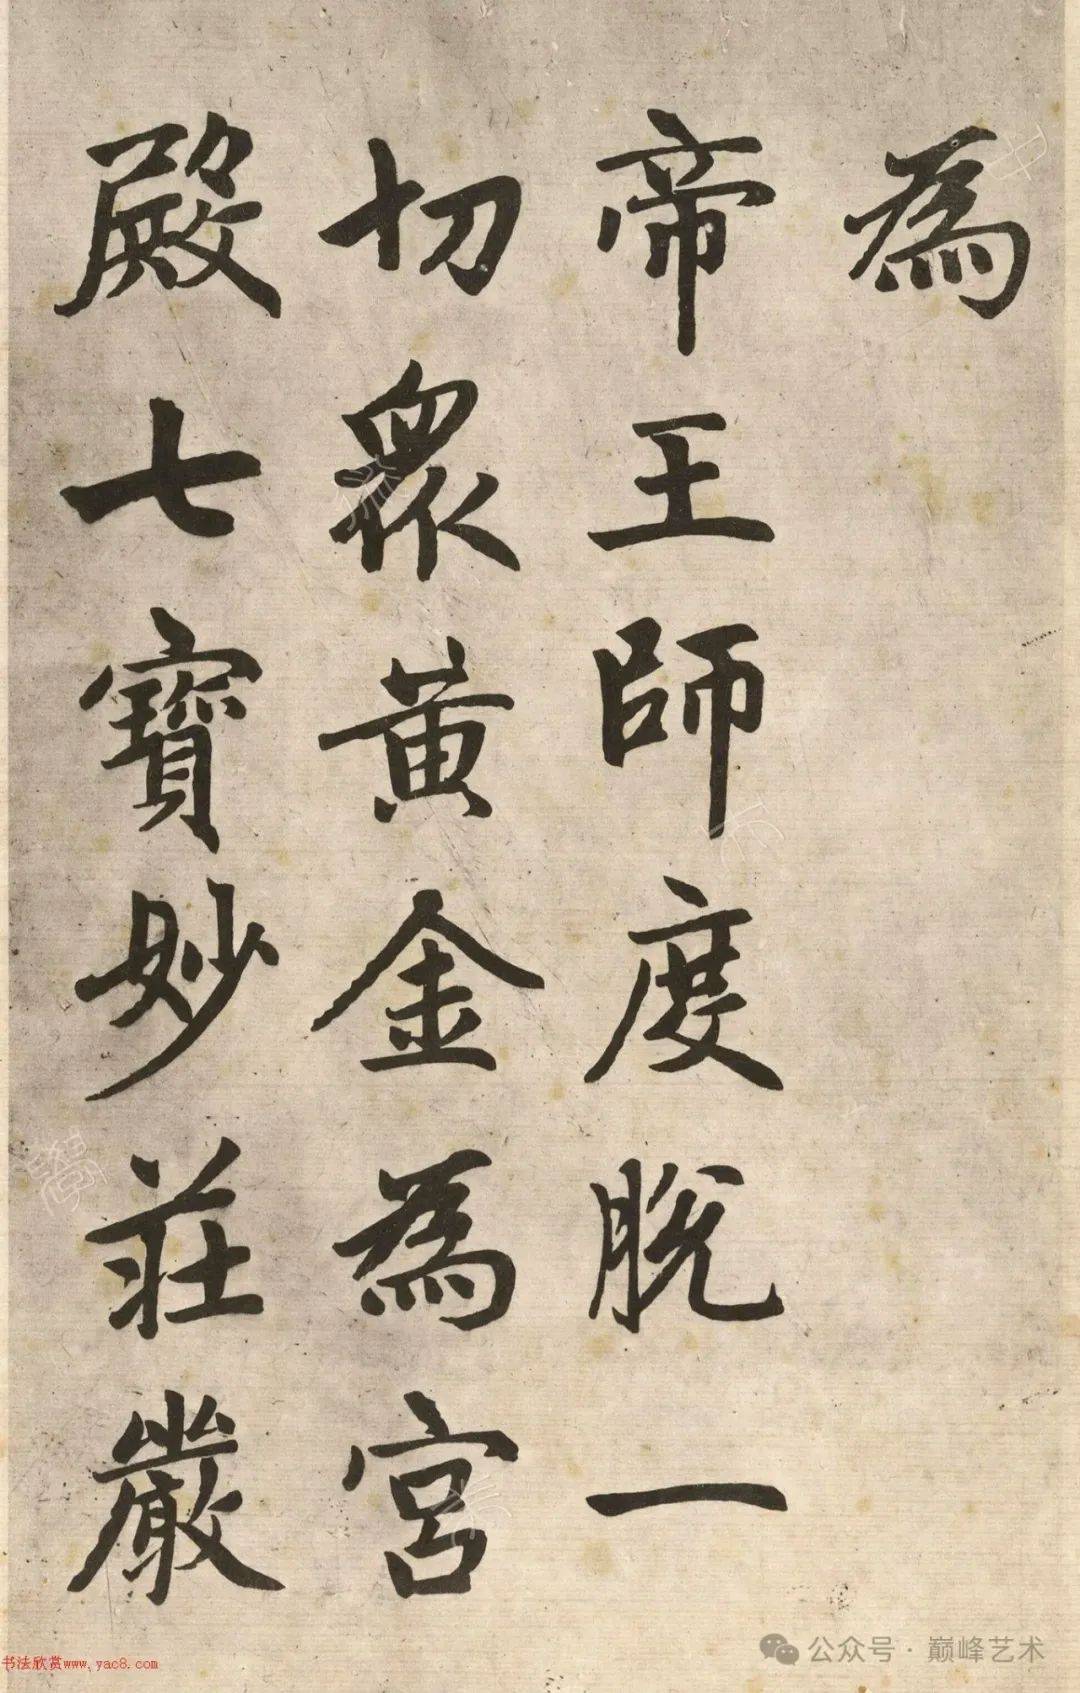 為
帝王師度脫一
切眾黃金為宮
殿七寶妙莊嚴
书法欣赏www.yac8.com
公众号·巅峰艺术